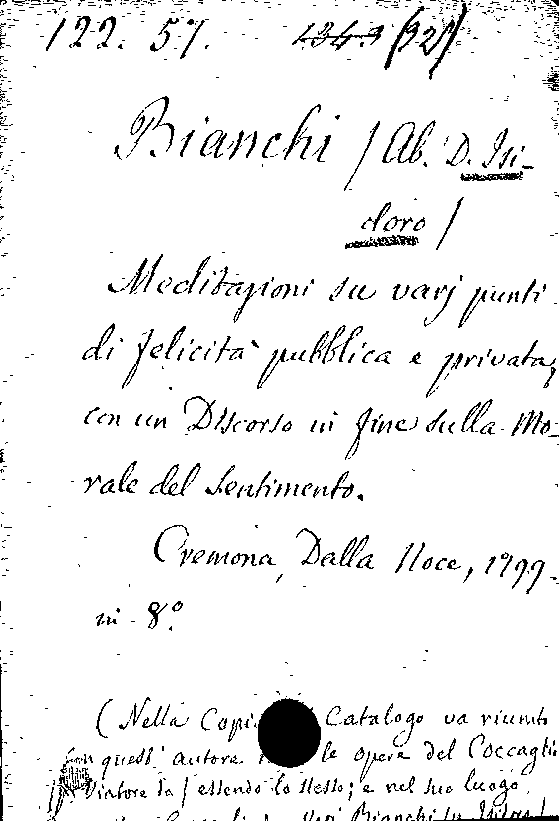 122. 57. 134.9 (32)
Bianchi / Ab. D. Isi-
doro /
Meditazioni su varj punti
di felicità pubblica e privata,
con un Discorso in fine sulla Mo-
rale del Sentimento.
Cremona, Dalla Noce, 1799.
in 8º
(Nella Catalogo va riunito
quest' autore le opere del Coccagli
Viatore da / essendo lo stesso; e nel suo luogo
Bianchi